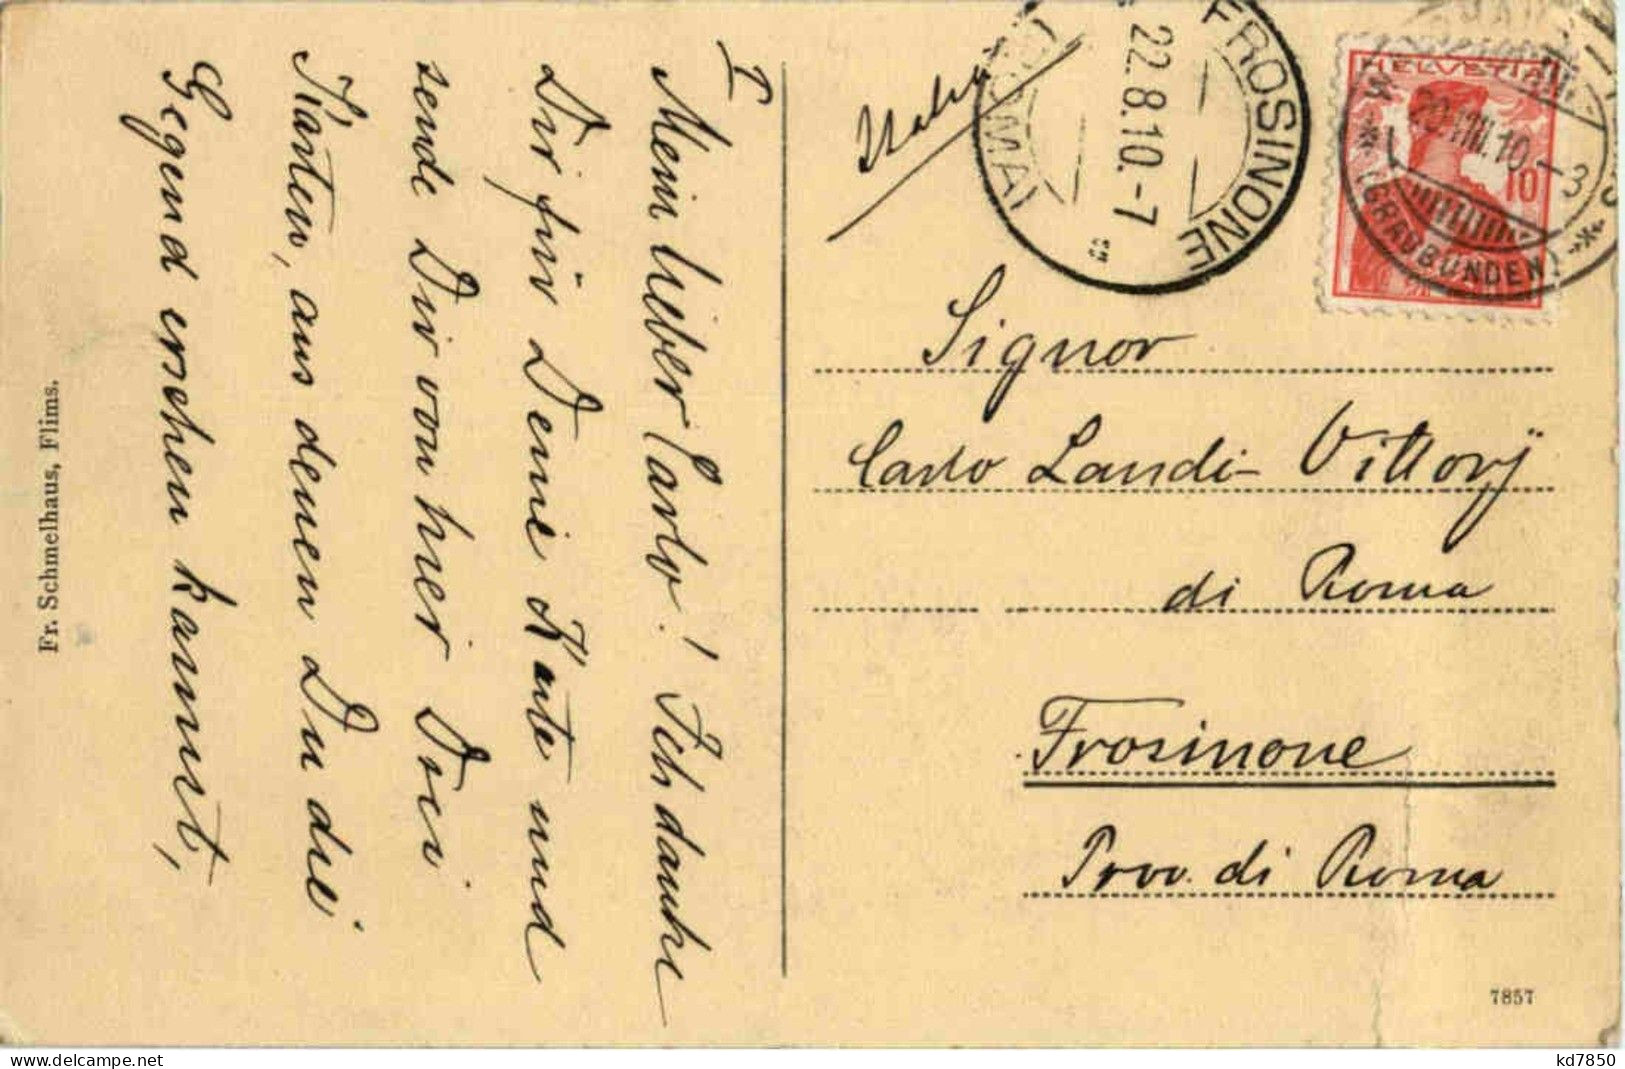 I
Mein lieber Carlo! Ich danke
Dir für Deine Karte und
sende Dir von hier Drei
Karten, aus denen Du die
Gegend ersehen kannst,
Fr. Schnelhaus, Flims.
Italia
FROSINONE
22.8.10.-7
FROSINONE
HELVETIA
10
20.VIII.10.-3
(GRAUBÜNDEN)
Signor
Carlo Landi-Vittorj
di Roma
Frosinone
Prov. di Roma
7857
kd7850